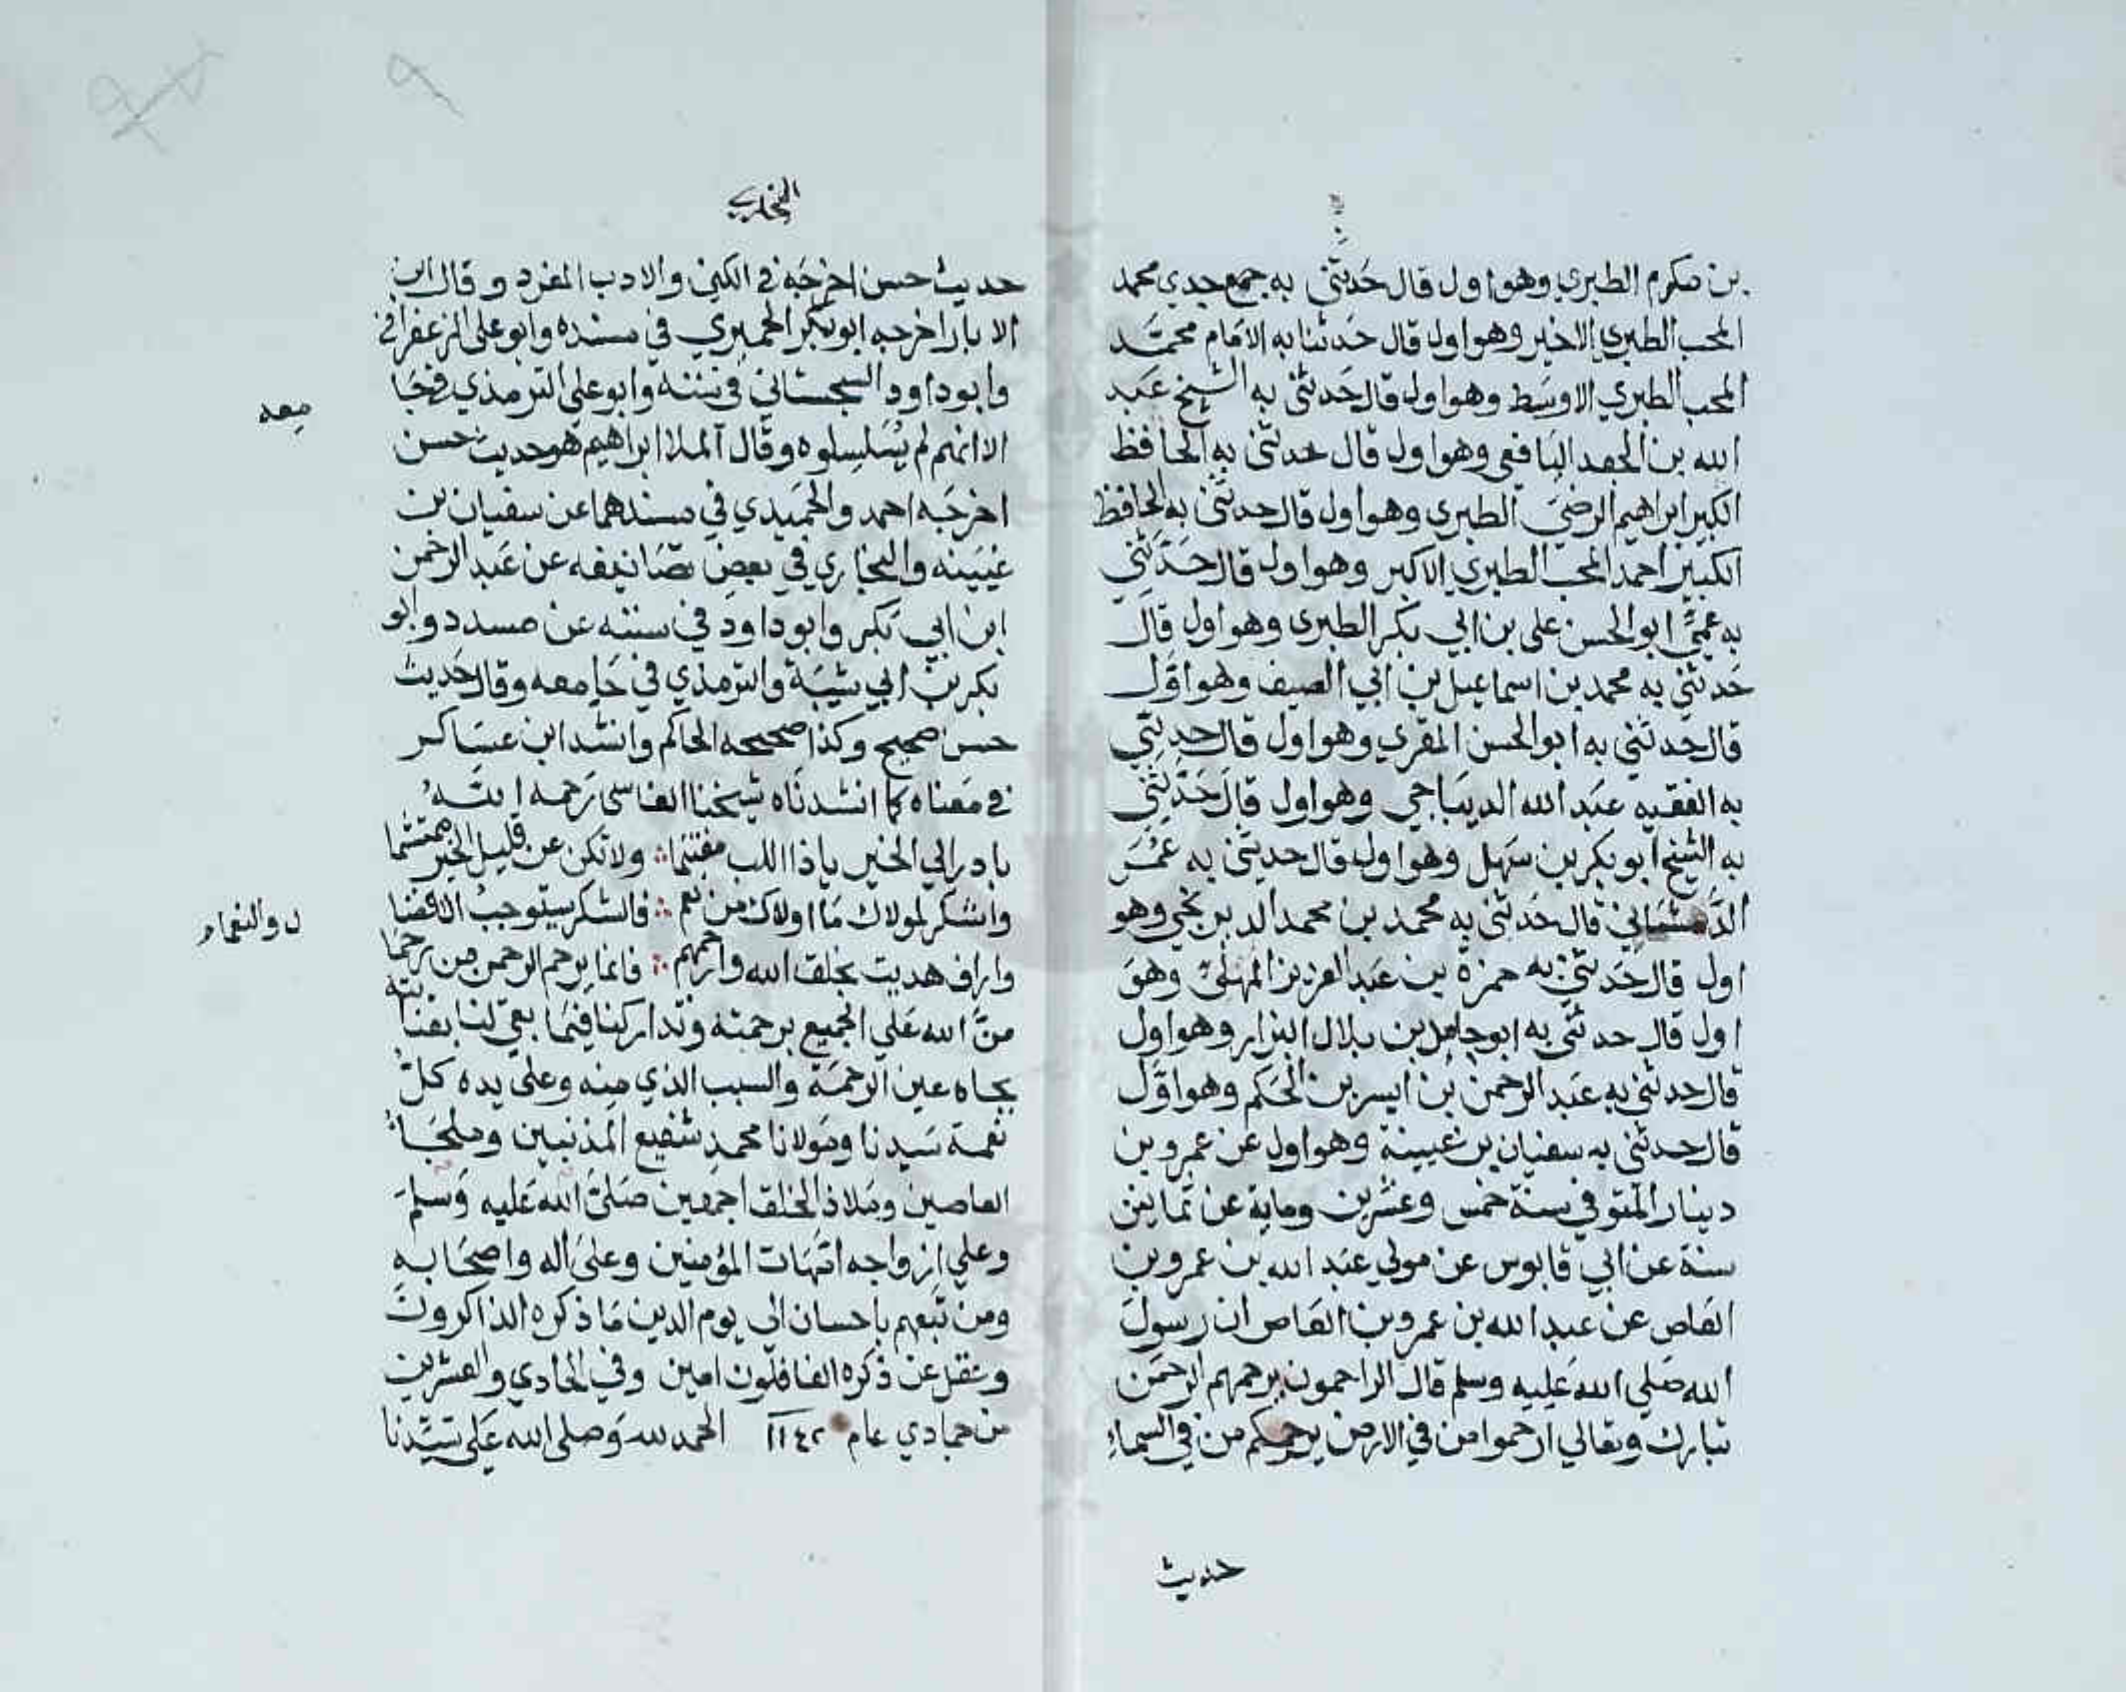 بن مكرم الطبري وهو اول قال حَدثني به جمع جدي محمد
المحب الطبري الاخير وهو اول قال حَدثنا به الامَام محمَّد
المحب الطبري الاوسَط وهو اول قال حَدثنى به الشيخ عَبد
الله بن اسعد اليَافعي وهو اول قال حدثنى به الحافظ
الكبير ابراهيم الرضيّ الطبرى وهو اول قال حدثنى به الحافظ
الكبير احمد المحب الطبري الاكبر وهو اول قال حَدَّثني
به عَميّ ابو الحسن على بن ابي بكر الطبرى وهو اول قال
حَدثني به محمد بن اسماعيل بن ابي الصيف وهو اوَّل
قال حدثني به ابو الحسن المقري وهو اول قال حدثني
به الفقيه عبَد الله الديبَاجي وهو اول قال حَدَّثني
به الشيخ ابو بكر بن سَهل وهو اول قال حدثنى به عمَر
قال حَدثنى به محمد بن محمد وهو
اول قال حَدثني به حمزة بن عبَد العزيز المهلبى وهوَ
اول قال حدثني به ابو حامد بن بلال البزار وهو اول
قال حدثني به عبَد الرحمن بن الحَكم وهو اوَّل
قال حدثني به سفيان بن عيينة وهو اول عن عمرو بن
دينار المتوفى سنة خمس وعشرين وماية عن ثمانين
سنة عن ابي قابوس عن مولي عبَد الله بن عمرو بن
العَاص عن عبد الله بن عمرو بن العَاص ان رسولَ
الله صَلي الله عَليه وسلم قال الراحمون يرحمهم الرحمَن
تبارك وتعالي ارحموا من في الارض يرحمكم من في السماءِ
حديث
البخاري
حديث حسن اخرجَه في الكنى والادب المفرد وقال ابن
الابار اخرجه ابو بكر الحميري في مسنده وابو على الزعفراني
وابو داود السجستاني في سننه وابو علي الترمذي في جَا
معه
الا انهم لم يُسَلسِلوه وقال آلملا ابراهيم هو حديث حسن
اخرجَه احمد والحمَيدي في مسندهما عن سفيان بن
عيَينه والبخاري في بعض تصَانيفه عن عبَد الرحمن
ابن ابي بكر وابو داود في سننه عن مسدد وابو
بكر بن ابي شيبَة والترمذي في جَامعه وقال حَديث
حسن صحيح وكذا صححه الحاكم وانشد ابن عسَاكر
في مَعناه كما انشدنَاه شيخنا الفاسي رَحمه الله
بادر الي الخير ياذا اللب مغتنما ؞ ولا تكن عن قليل الخير محتشما
واشكر لمولاك مَا اولاك من نعم ؞ فالشكر يستوجب الافضا
ل والنعماء
واراف هديت بخلق الله وارحمهم ؞ فانما يرحم الرحمن من رحمَا
منَّ الله عَلي الجميع برحمته وتداركنا فيمَا بقي لنا بعنايته
بجاه عين الرحمَة والسبب الذي منه وعلى يده كلّ
نعمة سَيدنا ومَولانا محمد شفيع المذنبين وملجَا
العاصين وملاذ الخلق اجمَعين صَلىَّ الله عَليه وَسَلم
وعلي ازواجه امَّهَات المؤمنين وعلىَ اله واصحَابه
ومن تبعهم باحسان الي يوم الدين مَا ذكره الذاكرون
وغفل عن ذكره الغافلون امين وفي الحادي والعشرين
من جمادي عام ١١٤٢ الحمد لله وَصلى الله عَلى سَيّدنا